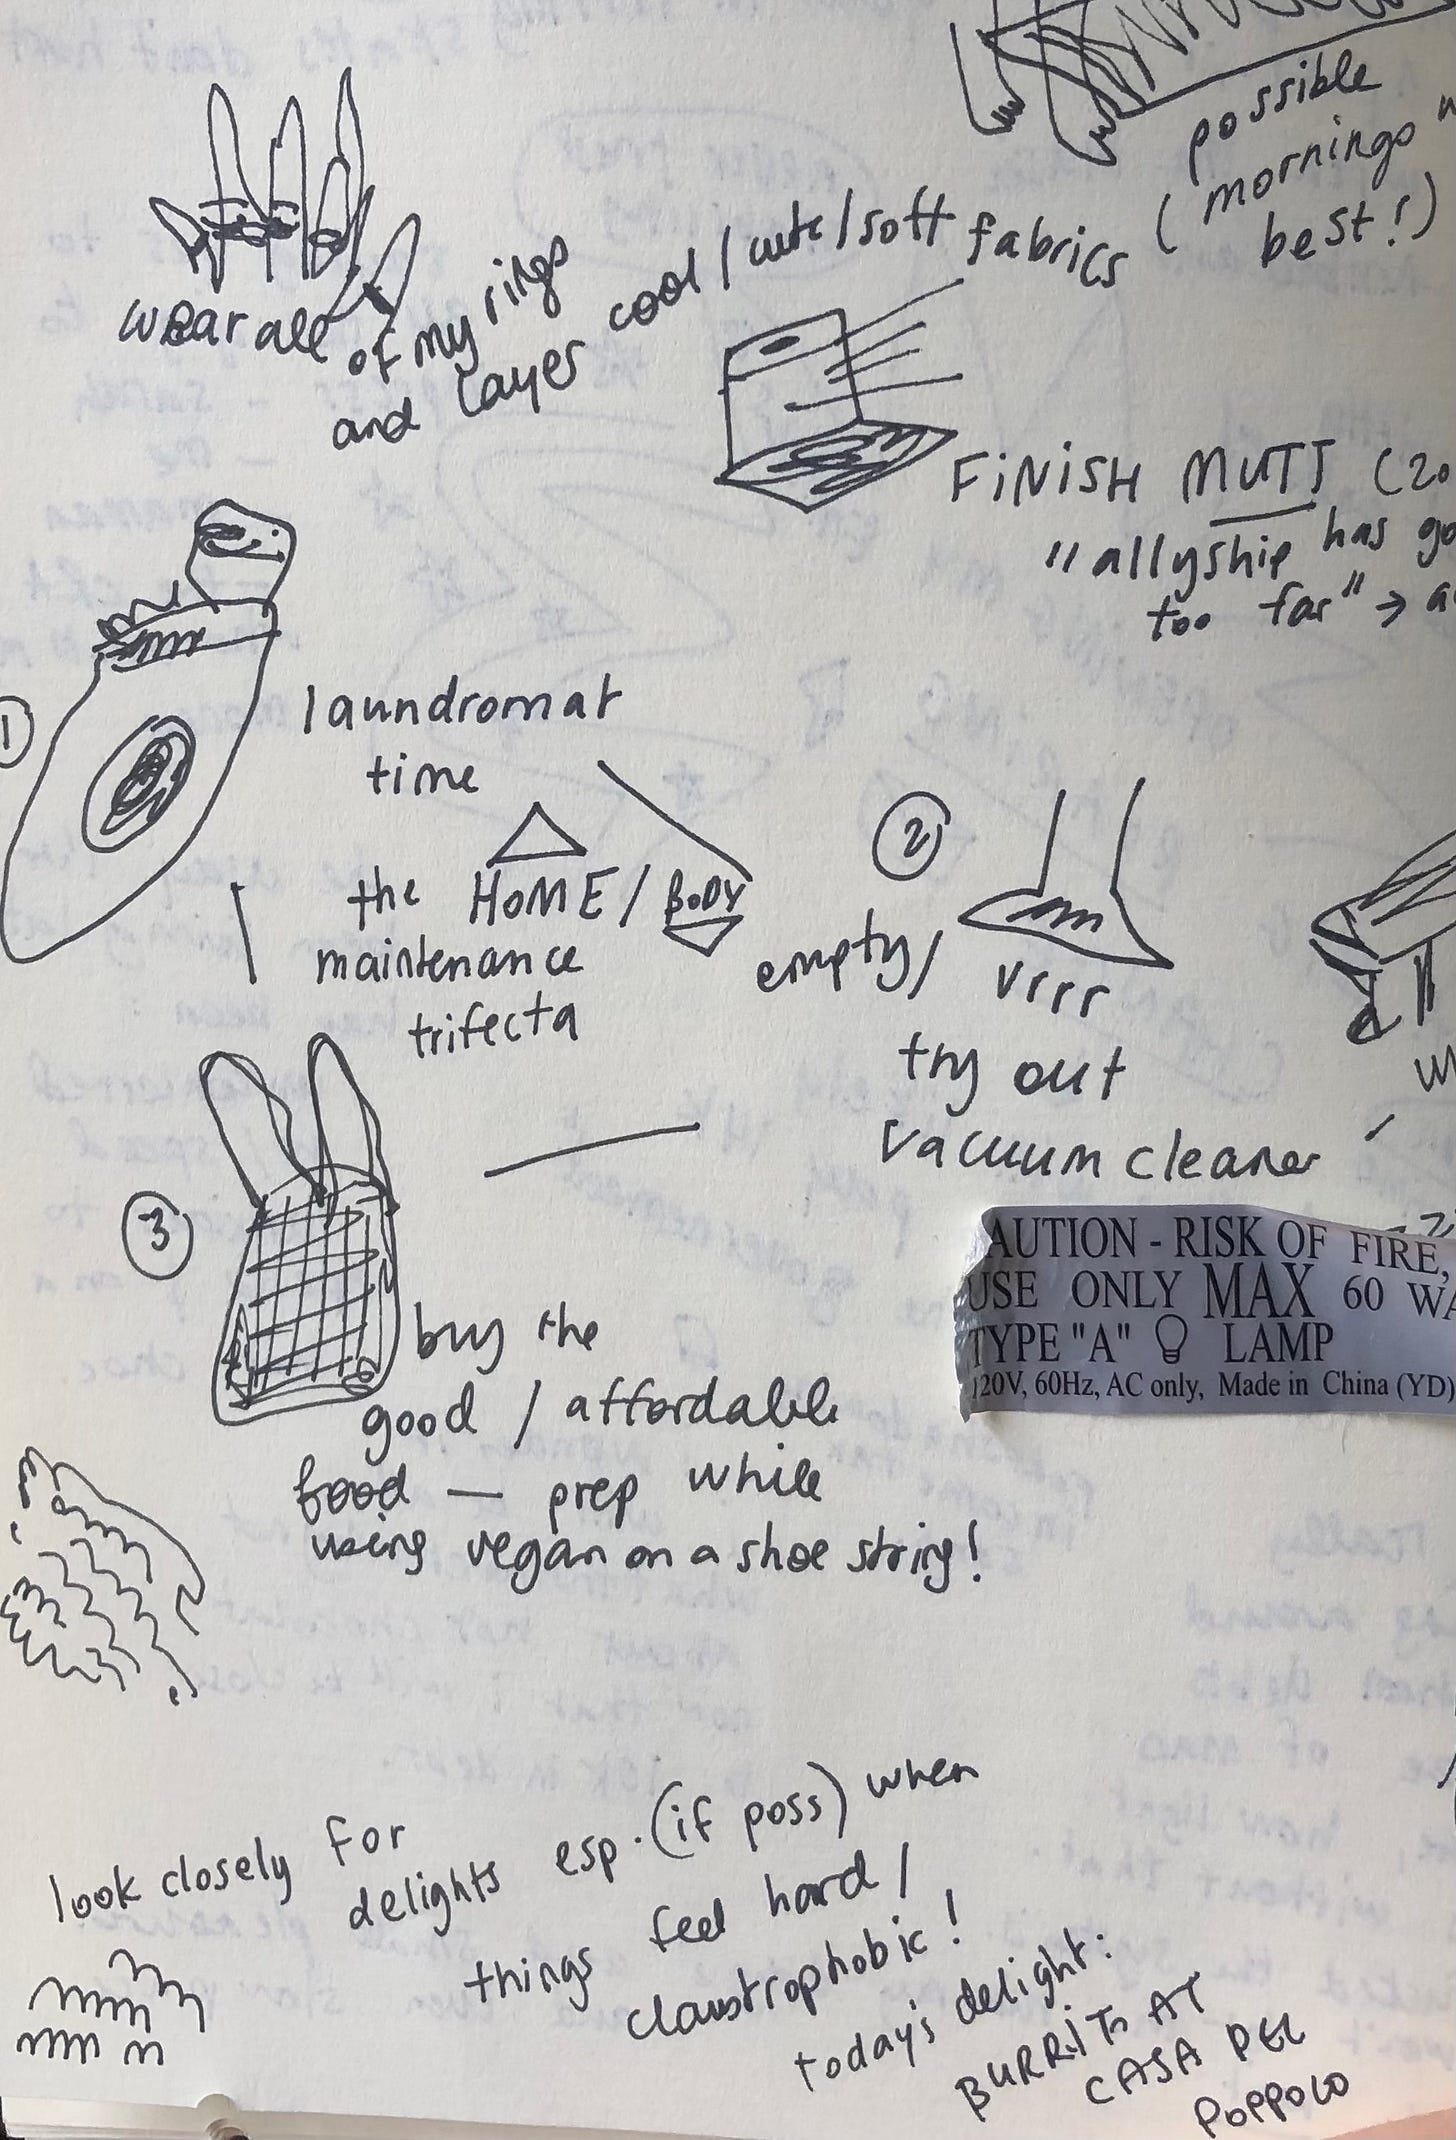 possible
(mornings
best!)
wear all of my rings
and layer cool / cute / soft fabrics
FINISH MUTT (20
"allyship has go
too far" → a
1
laundromat
time
the HOME / BODY
maintenance
trifecta
2
empty/
vrrr
try out
vacuum cleaner
3
buy the
good / affordable
food — prep while
using vegan on a shoe string!
AUTION - RISK OF FIRE,
USE ONLY MAX 60 WA
TYPE "A" LAMP
120V, 60Hz, AC only, Made in China (YD)
look closely for
delights esp. (if poss) when
things feel hard /
claustrophobic!
today's delight:
BURRITO AT
CASA DEL
POPPOLO